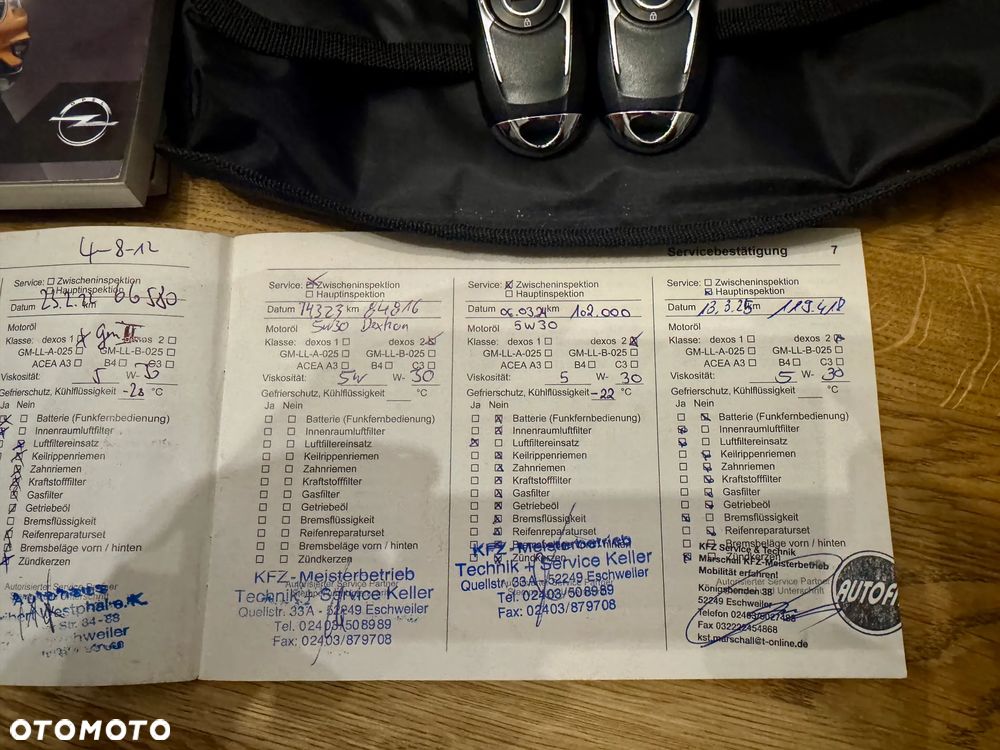 OPEL
4-8-12
Servicebestätigung 7
Service: Zwischeninspektion
Hauptinspektion
Datum 66580 km
Motoröl
Klasse: dexos 1 dexos 2
GM-LL-A-025 GM-LL-B-025
ACEA A3 B4 C3
Viskosität: 5 W-
Gefrierschutz, Kühlflüssigkeit °C
Ja Nein
Batterie (Funkfernbedienung)
Innenraumluftfilter
Luftfiltereinsatz
Keilrippenriemen
Zahnriemen
Kraftstofffilter
Gasfilter
Getriebeöl
Bremsflüssigkeit
Reifenreparaturset
Bremsbeläge vorn / hinten
Zündkerzen
Autorisierter Service Partner
Str. 84-88
Service: Zwischeninspektion
Hauptinspektion
Datum 14323 km 84816
Motoröl 5W30
Klasse: dexos 1 dexos 2
GM-LL-A-025 GM-LL-B-025
ACEA A3 B4 C3
Viskosität: 5W W- 30
Gefrierschutz, Kühlflüssigkeit °C
Ja Nein
Batterie (Funkfernbedienung)
Innenraumluftfilter
Luftfiltereinsatz
Keilrippenriemen
Zahnriemen
Kraftstofffilter
Gasfilter
Getriebeöl
Bremsflüssigkeit
Reifenreparaturset
Bremsbeläge vorn / hinten
Zündkerzen
Autorisierter Service Partner
KFZ-Meisterbetrieb
Technik + Service Keller
Quellstr. 33A - 52249 Eschweiler
Tel. 02403/508989
Fax: 02403/879708
Service: Zwischeninspektion
Hauptinspektion
Datum 06.03.24 km 102.000
Motoröl 5W30
Klasse: dexos 1 dexos 2
GM-LL-A-025 GM-LL-B-025
ACEA A3 B4 C3
Viskosität: 5 W- 30
Gefrierschutz, Kühlflüssigkeit -22 °C
Ja Nein
Batterie (Funkfernbedienung)
Innenraumluftfilter
Luftfiltereinsatz
Keilrippenriemen
Zahnriemen
Kraftstofffilter
Gasfilter
Getriebeöl
Bremsflüssigkeit
Reifenreparaturset
Zündkerzen
KFZ-Meisterbetrieb
Technik + Service Keller
Quellstr. 33A - 52249 Eschweiler
Tel. 02403/508989
Fax: 02403/879708
Service: Zwischeninspektion
Hauptinspektion
Datum 13.3.25 km 119.418
Motoröl
Klasse: dexos 1 dexos 2
GM-LL-A-025 GM-LL-B-025
ACEA A3 B4 C3
Viskosität: 5 W- 30
Gefrierschutz, Kühlflüssigkeit °C
Ja Nein
Batterie (Funkfernbedienung)
Innenraumluftfilter
Luftfiltereinsatz
Keilrippenriemen
Zahnriemen
Kraftstofffilter
Gasfilter
Getriebeöl
Bremsflüssigkeit
Reifenreparaturset
Bremsbeläge vorn / hinten
Zündkerzen
KFZ Service & Technik
Marschall KFZ-Meisterbetrieb
Mobilität erfahren!
Autorisierter Service Partner
Königsbenden 38
52249 Eschweiler
Telefon 02403/5027488
Fax 032222454868
kst.marschall@t-online.de
AUTOFI
OTOMOTO